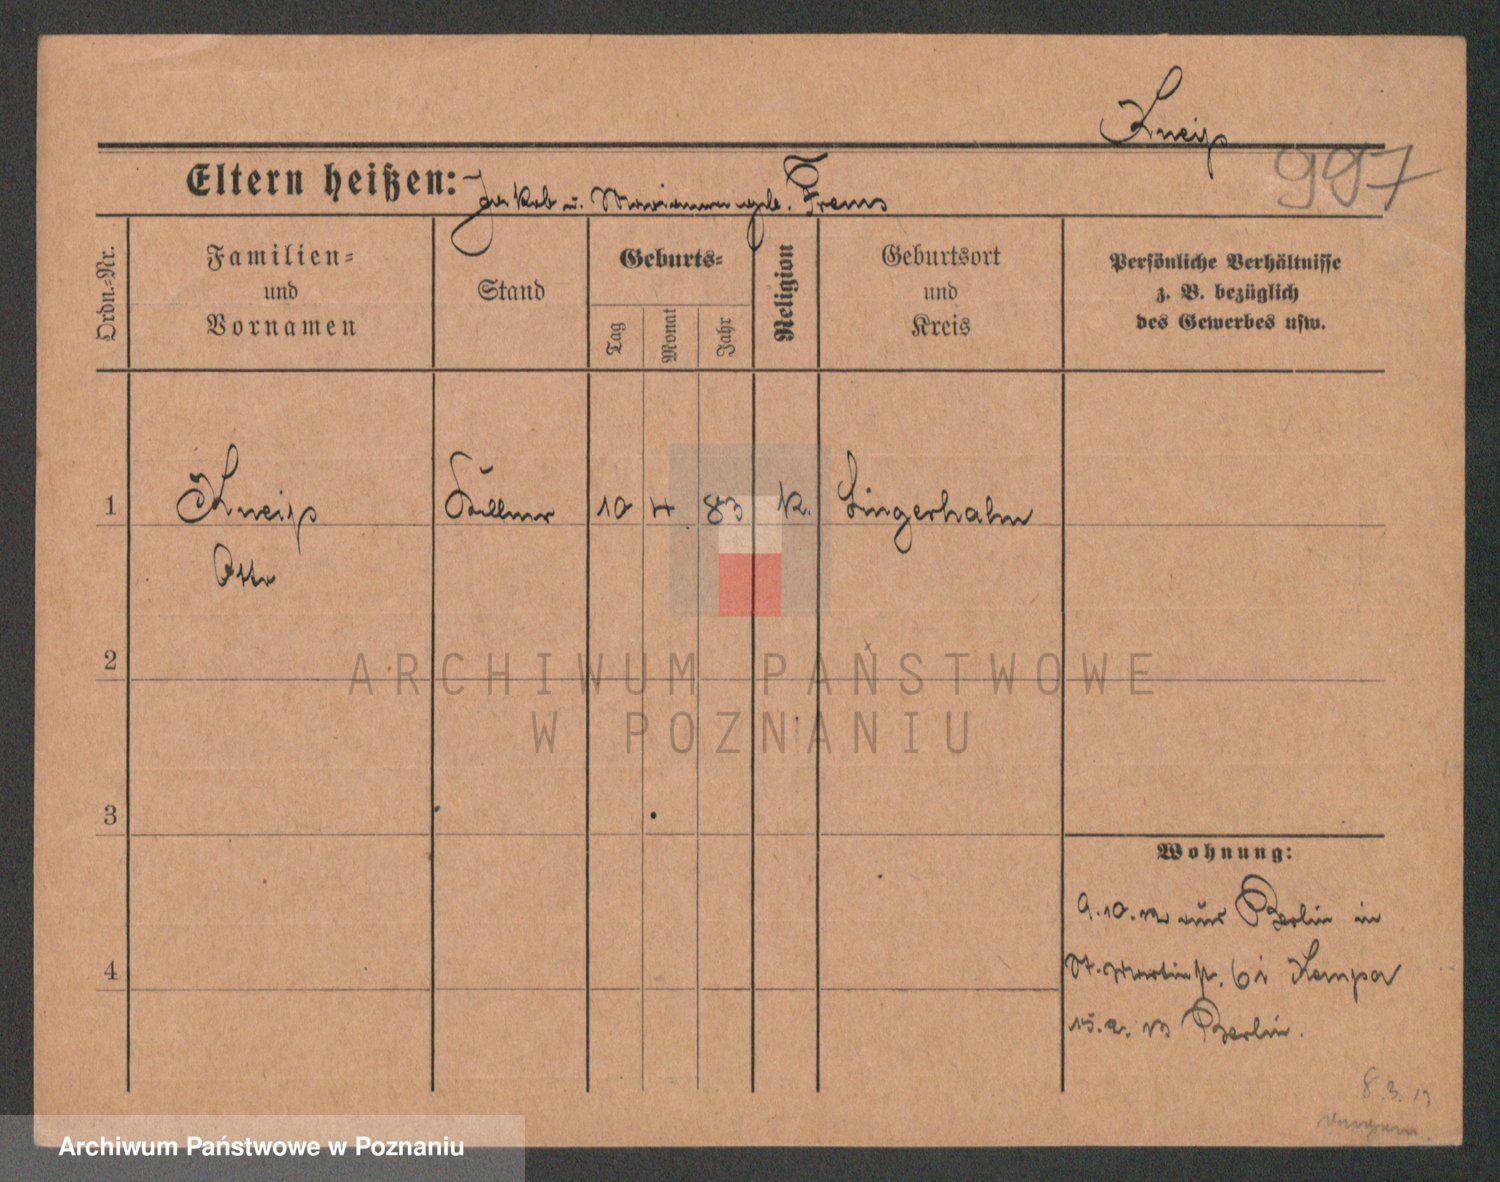 Kneip
997
Eltern heißen: Jakob u. Marianna geb. Frems
Ordn.-Nr.
Familien-
und
Vornamen
Stand
Geburts-
Tag
Monat
Jahr
Religion
Geburtsort
und
Kreis
Persönliche Verhältnisse
z. B. bezüglich
des Gewerbes usw.
1 Kneip Kellner 10 4 83 K. Lingerhahn
Otto
2
3
4
ARCHIWUM PAŃSTWOWE
W POZNANIU
Wohnung:
9.10.12 aus Berlin in
St. Martinstr. 6 Kempa
15.2.13 Berlin.
8.3.13
Archiwum Państwowe w Poznaniu